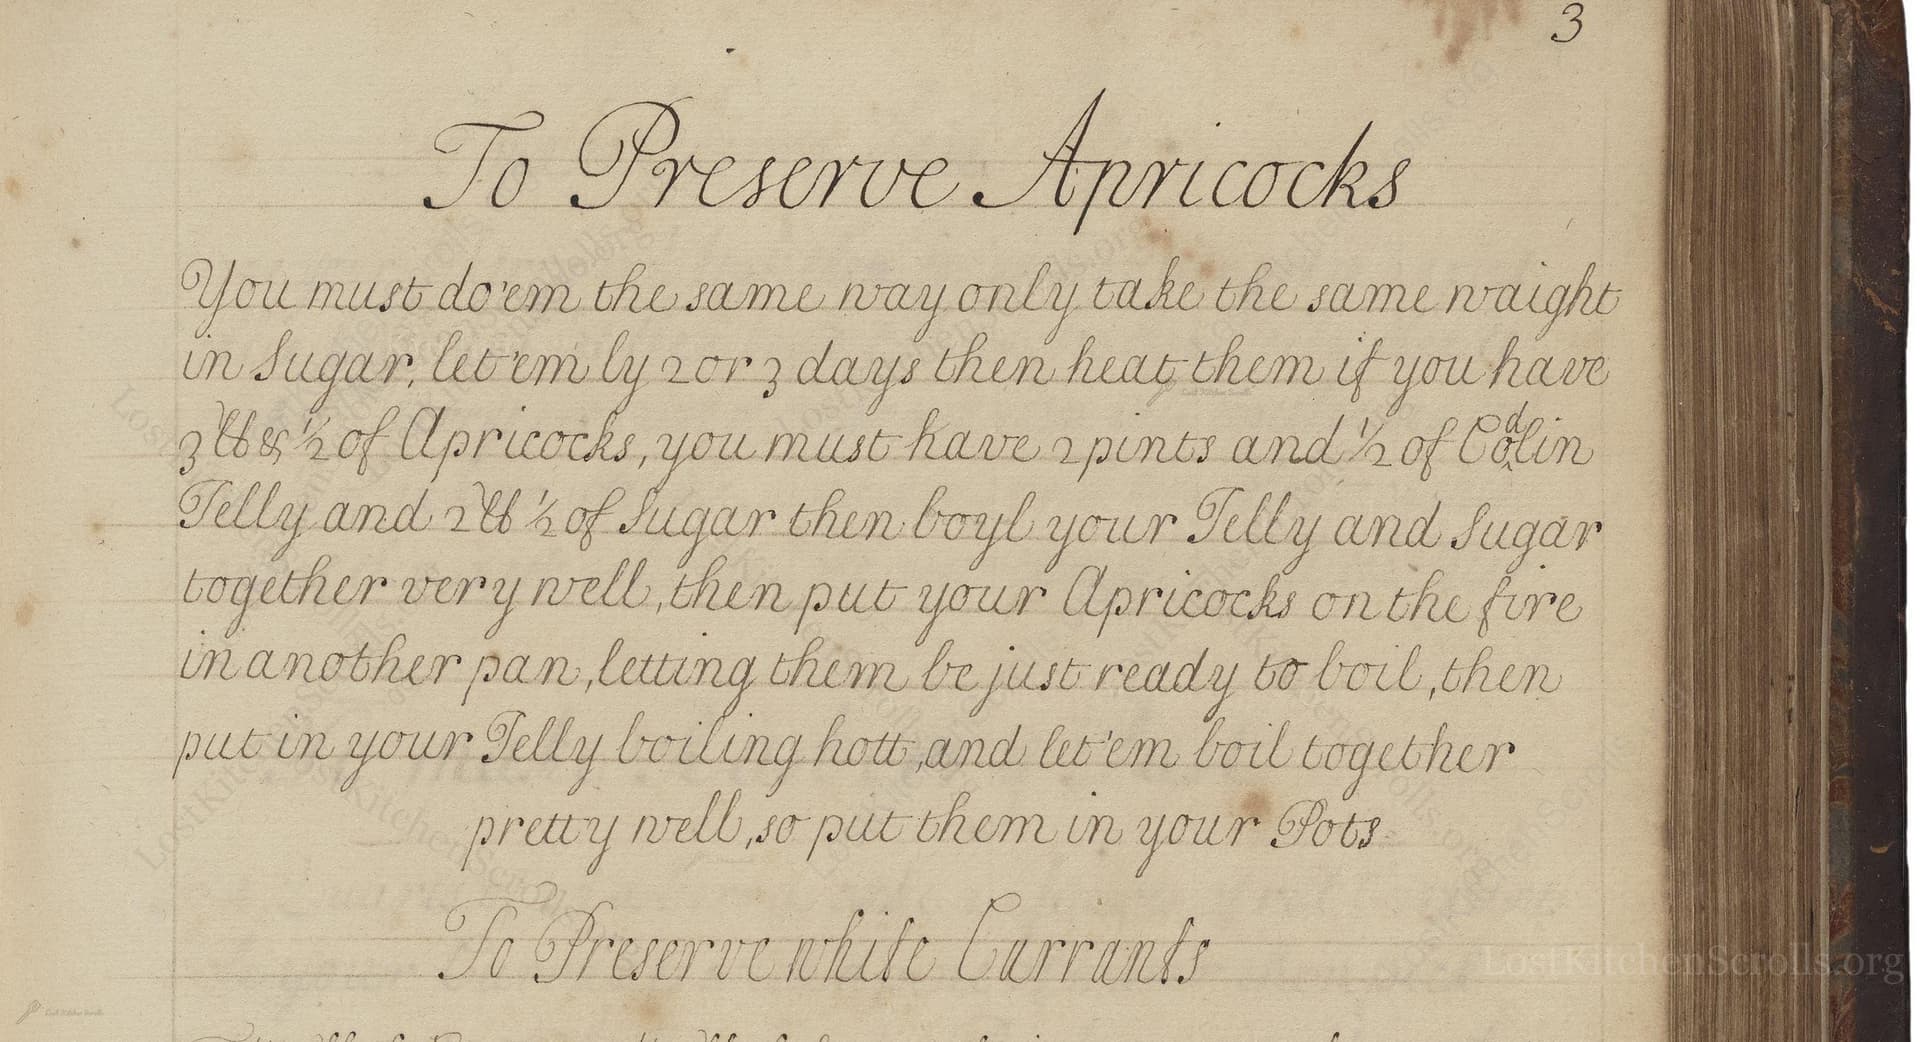 3
To Preserve Apricocks
You must do'em the same way only take the same waight
in Sugar, let'em ly 2 or 3 days then heat them if you have
3 lb & ½ of Apricocks, you must have 2 pints and ½ of Codlin
Jelly and 2 lb ½ of Sugar then boyl your Jelly and Sugar
together very well, then put your Apricocks on the fire
in another pan, letting them be just ready to boil, then
put in your Jelly boiling hott, and let'em boil together
pretty well, so put them in your Pots
To Preserve white Currants
LostKitchenScrolls.org